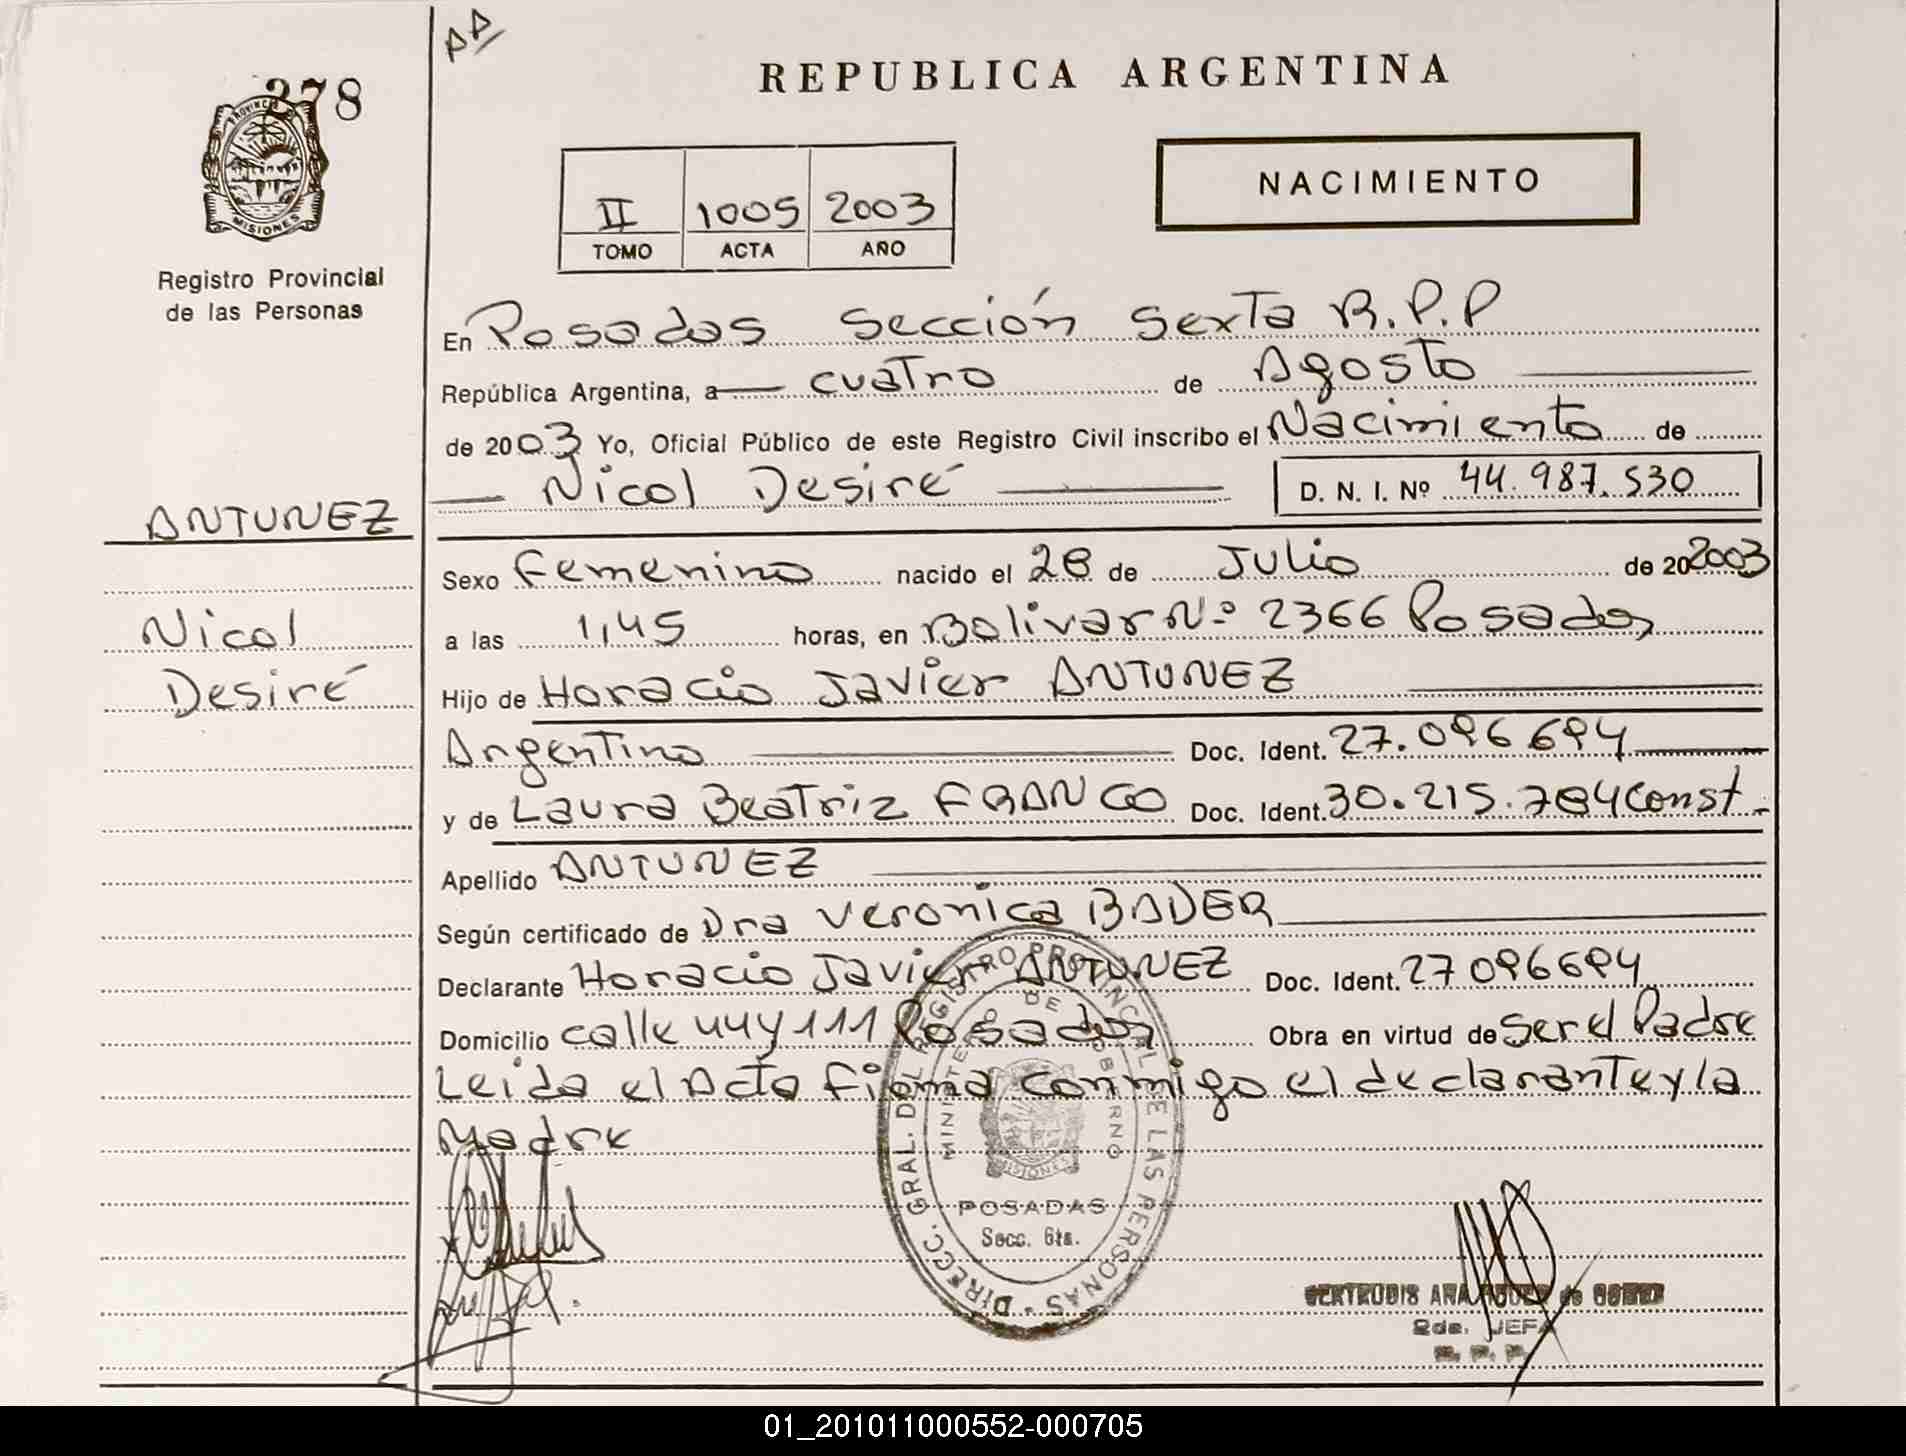 AA
REPUBLICA ARGENTINA
378
PROVINCIA DE
MISIONES
Registro Provincial
de las Personas
II 1005 2003
TOMO ACTA AÑO
NACIMIENTO
En Posadas Sección Sexta R.P.P
República Argentina, a cuatro de Agosto
de 2003 Yo, Oficial Público de este Registro Civil inscribo el Nacimiento de
Nicol Desiré D. N. I. Nº 44.987.530
ANTUNEZ
Nicol
Desiré
Sexo Femenino nacido el 28 de Julio de 202003
a las 1,45 horas, en Bolivar Nº 2366 Posadas
Hijo de Horacio Javier ANTUNEZ
Argentino Doc. Ident. 27.096694
y de Laura Beatriz FRANCO Doc. Ident. 30.215.784 Const.
Apellido ANTUNEZ
Según certificado de Dra Veronica BADER
Declarante Horacio Javier ANTUNEZ Doc. Ident. 27096694
Domicilio calle 44y111 Posadas Obra en virtud de Ser el Padre
Leida el Acta firma conmigo el declarante y la
Madre
DIRECC. GRAL. DEL REGISTRO PROVINCIAL DE LAS PERSONAS
MINISTERIO DE GOBIERNO
MISIONES
POSADAS
Secc. 6ta.
GERTRUDIS ANA de GOMEZ
2da. JEFA
R. P. P.
01_201011000552-000705